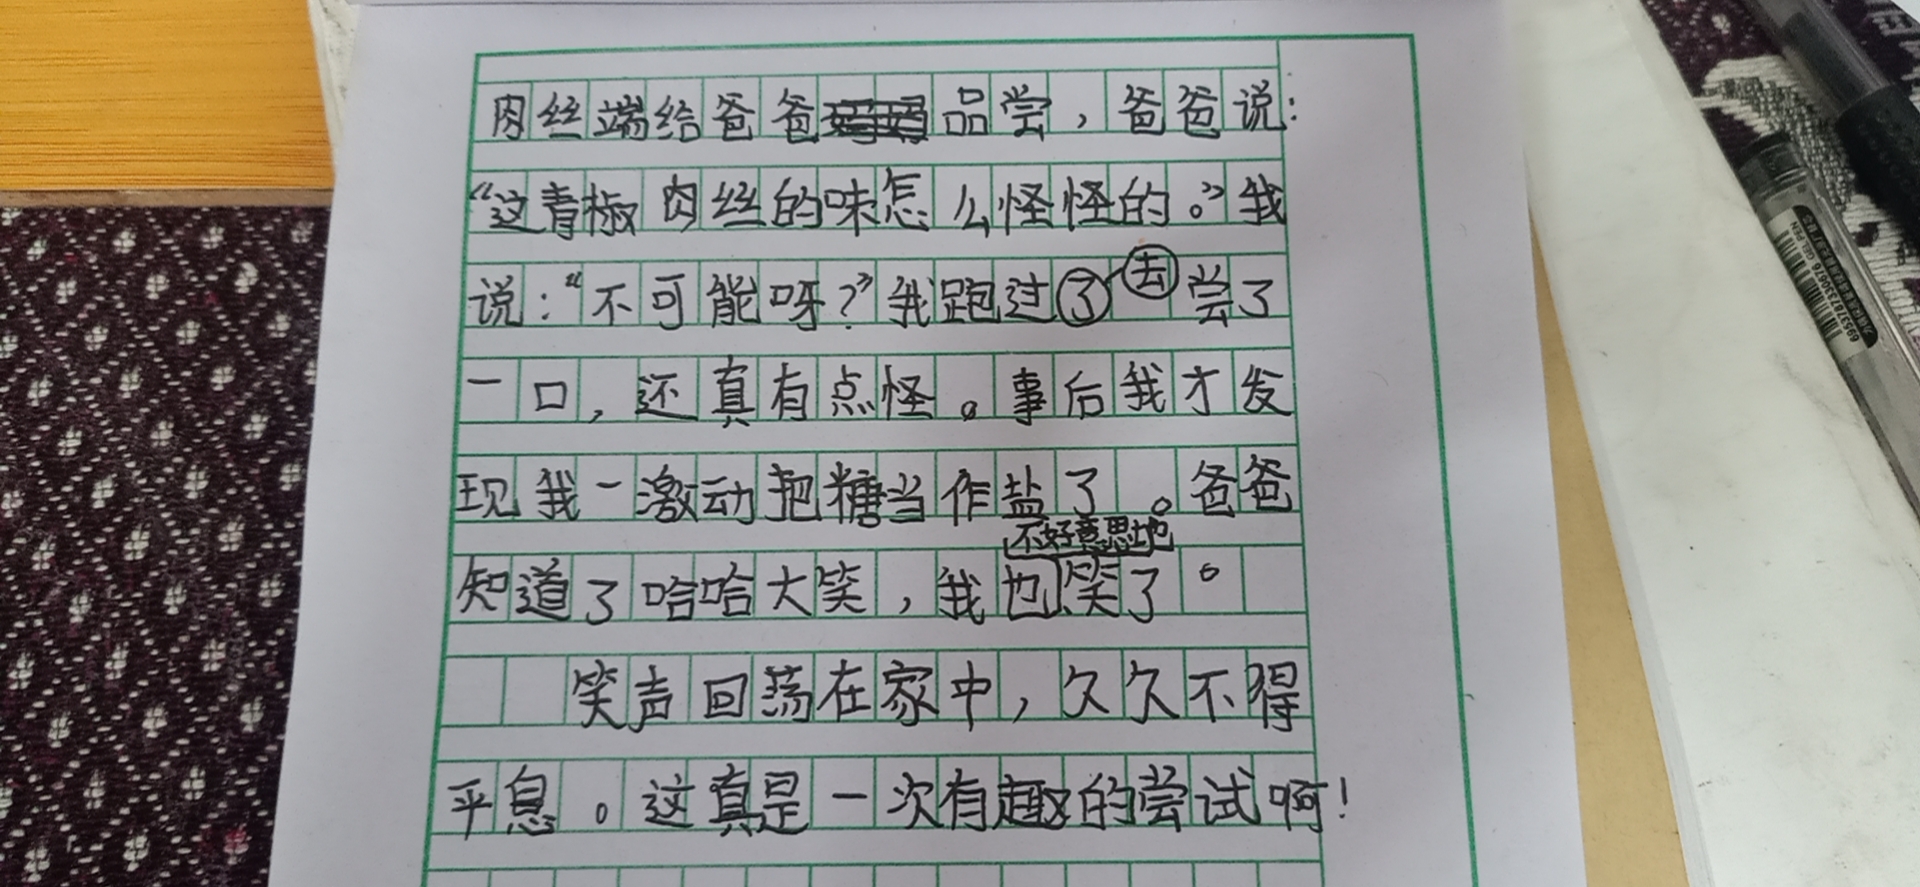 肉丝端给爸爸品尝，爸爸说：
“这青椒肉丝的味怎么怪怪的。”我
说：“不可能呀？”我跑过了去尝了
一口，还真有点怪。事后我才发
现我一激动把糖当作盐了。爸爸
不好意思地
知道了哈哈大笑，我也笑了。
笑声回荡在家中，久久不得
平息。这真是一次有趣的尝试啊！
GEL PEN